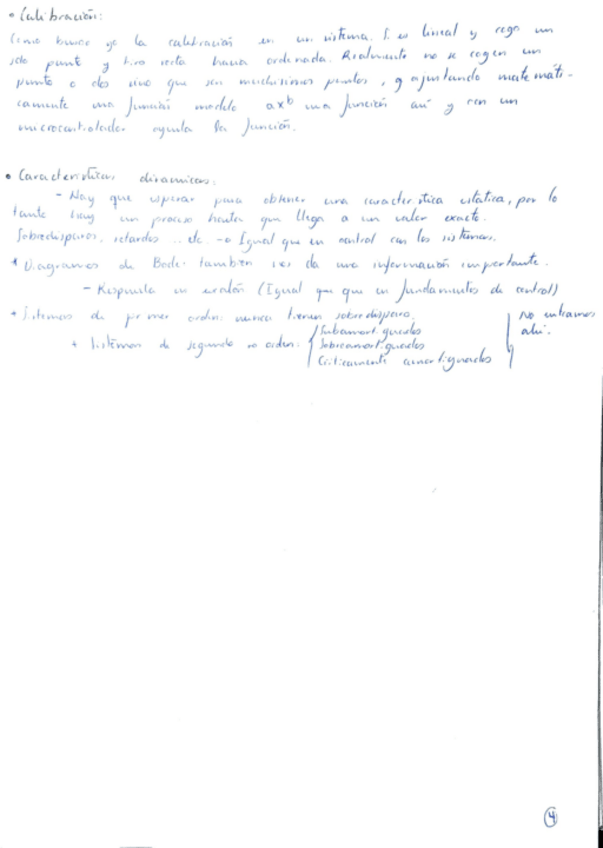 • Calibración:
Como busco yo la calibración en un sistema. Si es lineal y cogo un
solo punto y tiro recta hacia ordenada. Realmente no se cogen un
punto o dos sino que son muchisimos puntos, y ajustando matemáti-
camente una función modelo ax^b una función así y con un
microcontrolador ayuda la función.
• Caracteristicas dinamicas:
- Hay que esperar para obtener una caracteristica estática, por lo
tanto hay un proceso hasta que llega a un valor exacto.
Sobredisparos, retardos .. etc → Igual que en control con los sistemas.
* Diagramas de Bode: también nos da una información importante.
- Respuesta en escalón (Igual que que en fundamentos de control)
+ Sistemas de primer orden: nunca tienen sobredisparo.
+ Sistemas de segundo orden: Subamortiguados
Sobreamortiguados
Criticamente amortiguados
No entramos
ahí.
4